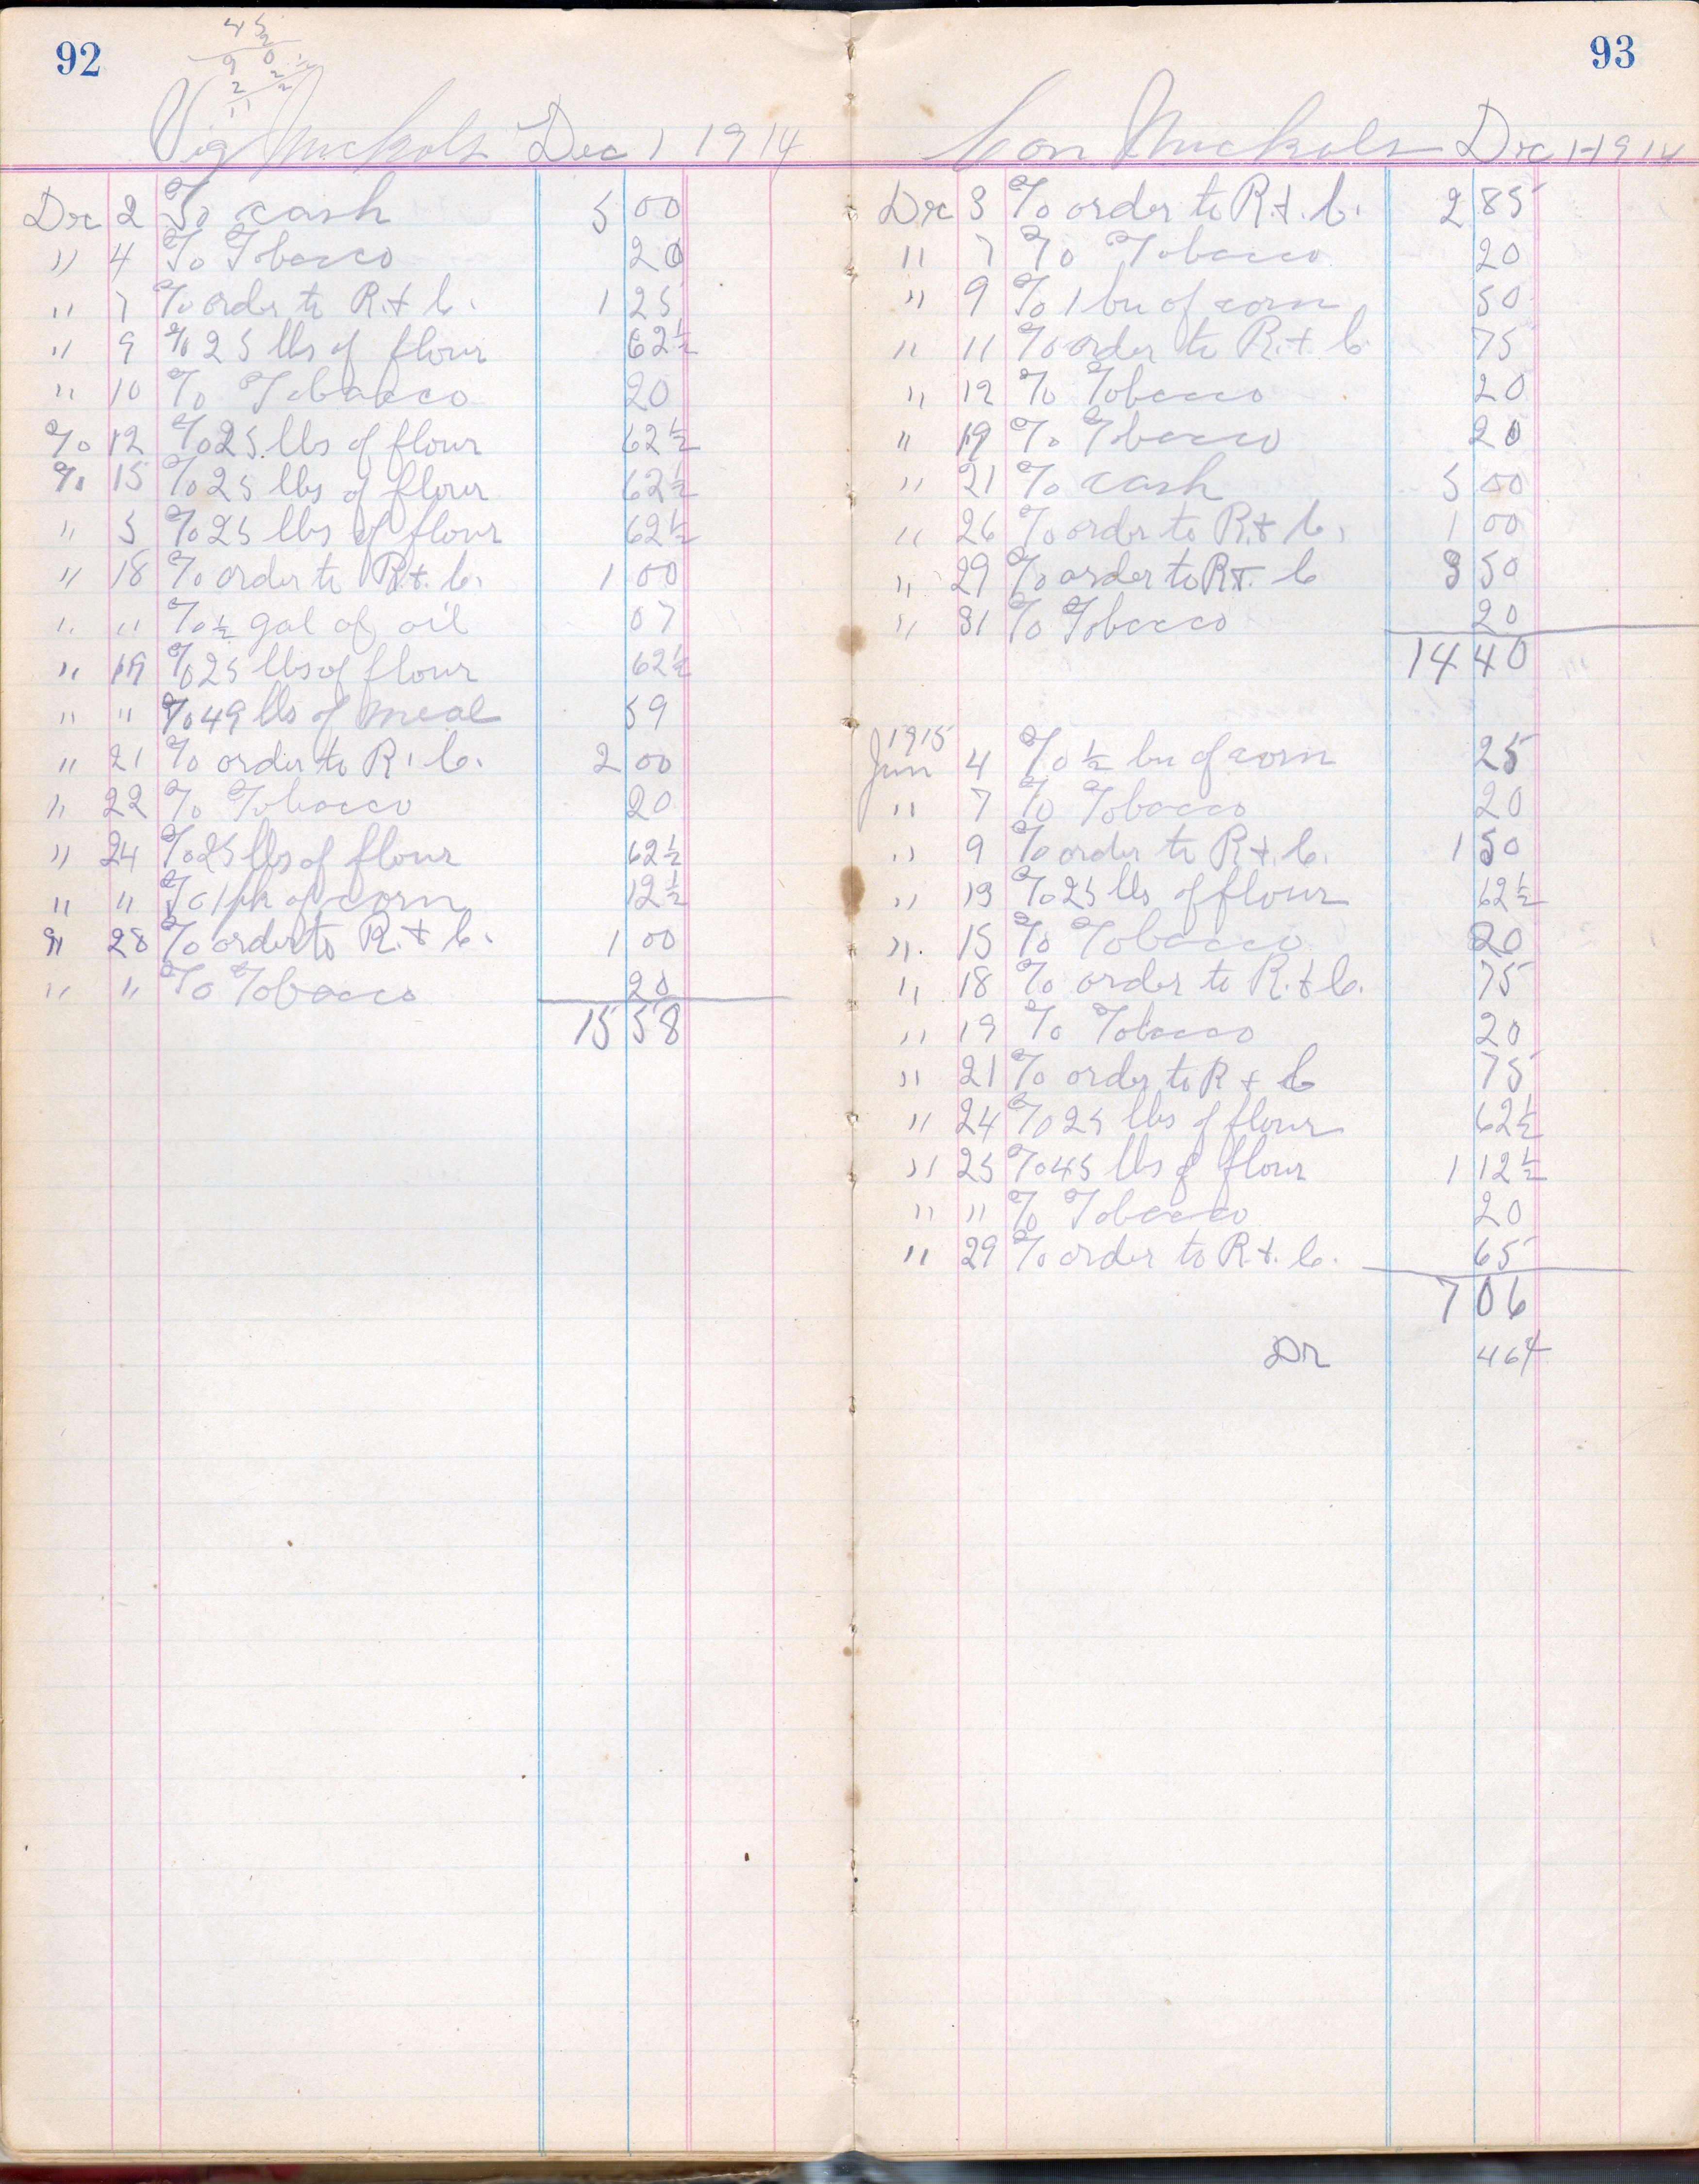 92
45
2
90
2 2 1/2
2 2
11
Vig Nuckols Dec 1 1914
Dec 2 To cash 5 00
" 4 To Tobacco 20
" 7 To order to R. & C. 1 25
" 9 To 25 lbs of flour 62 1/2
" 10 To Tobacco 20
To 12 To 25 lbs of flour 62 1/2
" 15 To 25 lbs of flour 62 1/2
" 5 To 25 lbs of flour 62 1/2
" 18 To order to R. & C. 1 00
" " To 1/2 gal of oil 07
" 19 To 25 lbs of flour 62 1/2
" " To 49 lbs of meal 59
" 21 To order to R & C. 2 00
" 22 To Tobacco 20
" 24 To 25 lbs of flour 62 1/2
" " To 1 pk of corn 12 1/2
" 28 To order to R. & C. 1 00
" " To Tobacco 20
15 58
93
Con Nuckols Dec 1 1914
Dec 3 To order to R. & C. 2 85
" 7 To Tobacco 20
" 9 To 1 bu of corn 50
" 11 To order to R. & C 75
" 12 To Tobacco 20
" 19 To Tobacco 20
" 21 To cash 5 00
" 26 To order to R. & C. 1 00
" 29 To order to R. & C 3 50
" 31 To Tobacco 20
14 40
1915
Jan 4 To 1/2 bu of corn 25
" 7 To Tobacco 20
" 9 To order to R. & C. 1 50
" 13 To 25 lbs of flour 62 1/2
" 15 To Tobacco 20
" 18 To order to R. & C. 75
" 19 To Tobacco 20
" 21 To order to R & C 75
" 24 To 25 lbs of flour 62 1/2
" 25 To 45 lbs of flour 1 12 1/2
" " To Tobacco 20
" 29 To order to R. & C. 65
7 06
Dr 464